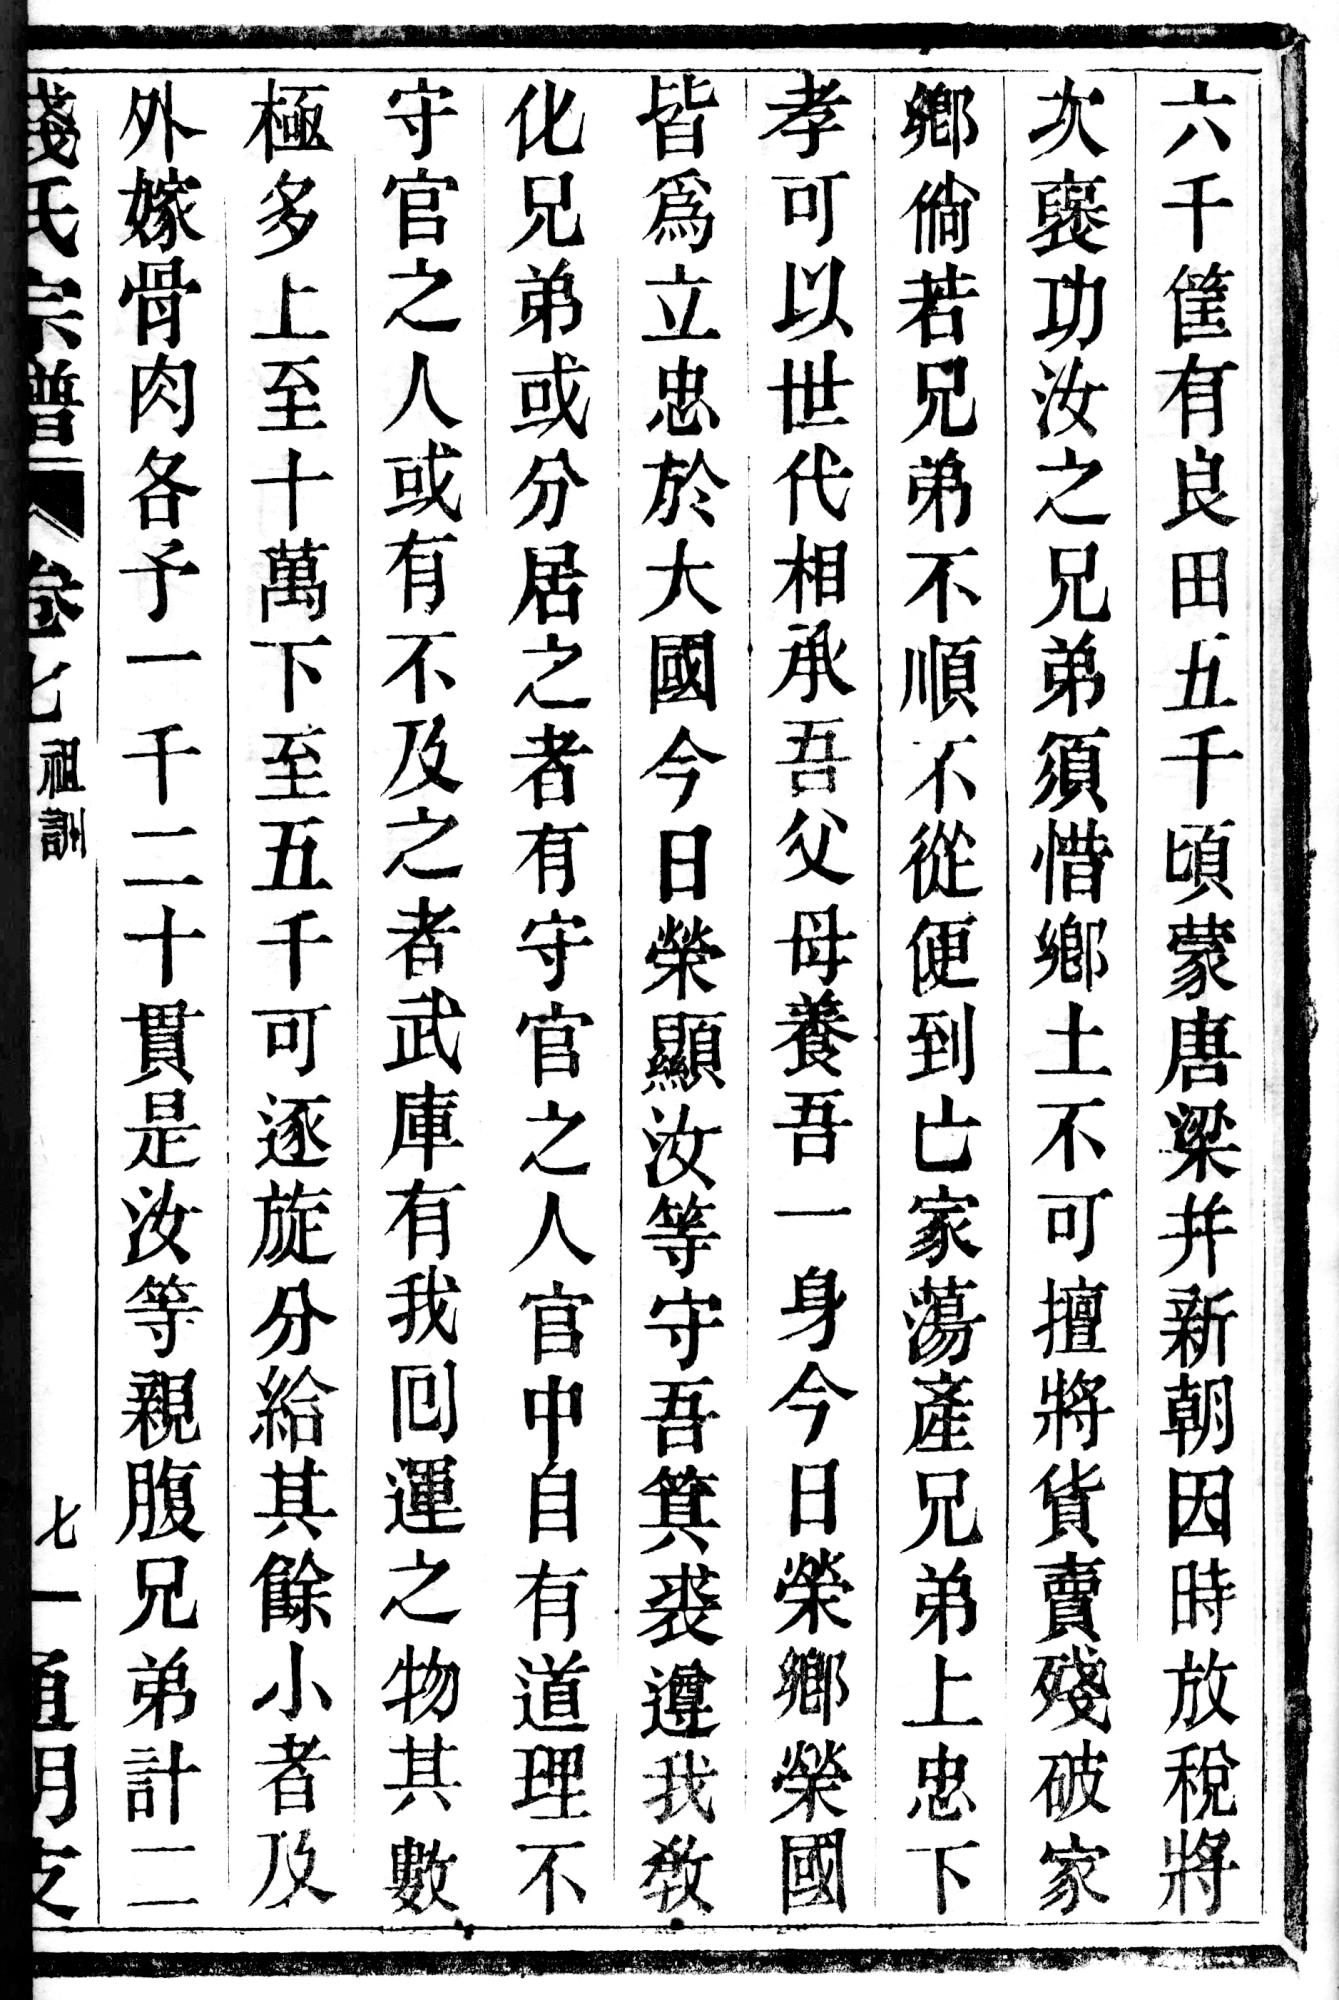 六千篚有良田五千頃蒙唐梁并新朝因時放稅將
次褒功汝之兄弟須惜鄉土不可擅將貨賣殘破家
鄉倘若兄弟不順不從便到亡家蕩產兄弟上忠下
孝可以世代相承吾父母養吾一身今日榮鄉榮國
皆爲立忠於大國今日榮顯汝等守吾箕裘遵我教
化兄弟或分居之者有守官之人官中自有道理不
守官之人或有不及之者武庫有我囘運之物其數
極多上至十萬下至五千可逐旋分給其餘小者及
外嫁骨肉各予一千二十貫是汝等親腹兄弟計二
錢氏宗譜 卷七 祖訓 七 通明支